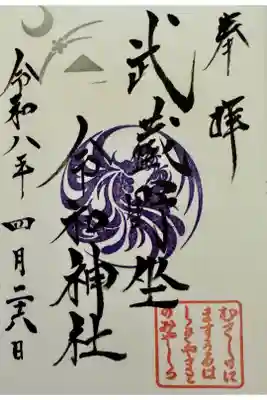 奉拝
武蔵野坐
令和神社
令和八年 四月二六日
むさしのに
ますうるは
しきやまと
のみやしろ